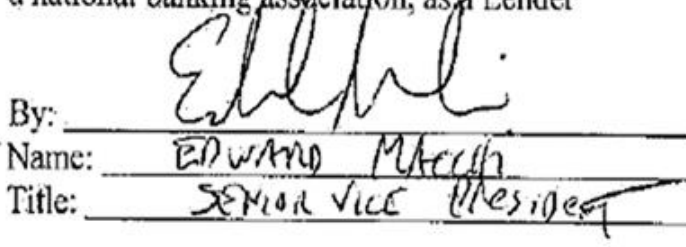 a national banking association, as a Lender
By:
Name: EDWARD
Title: SENIOR VICE PRESIDENT